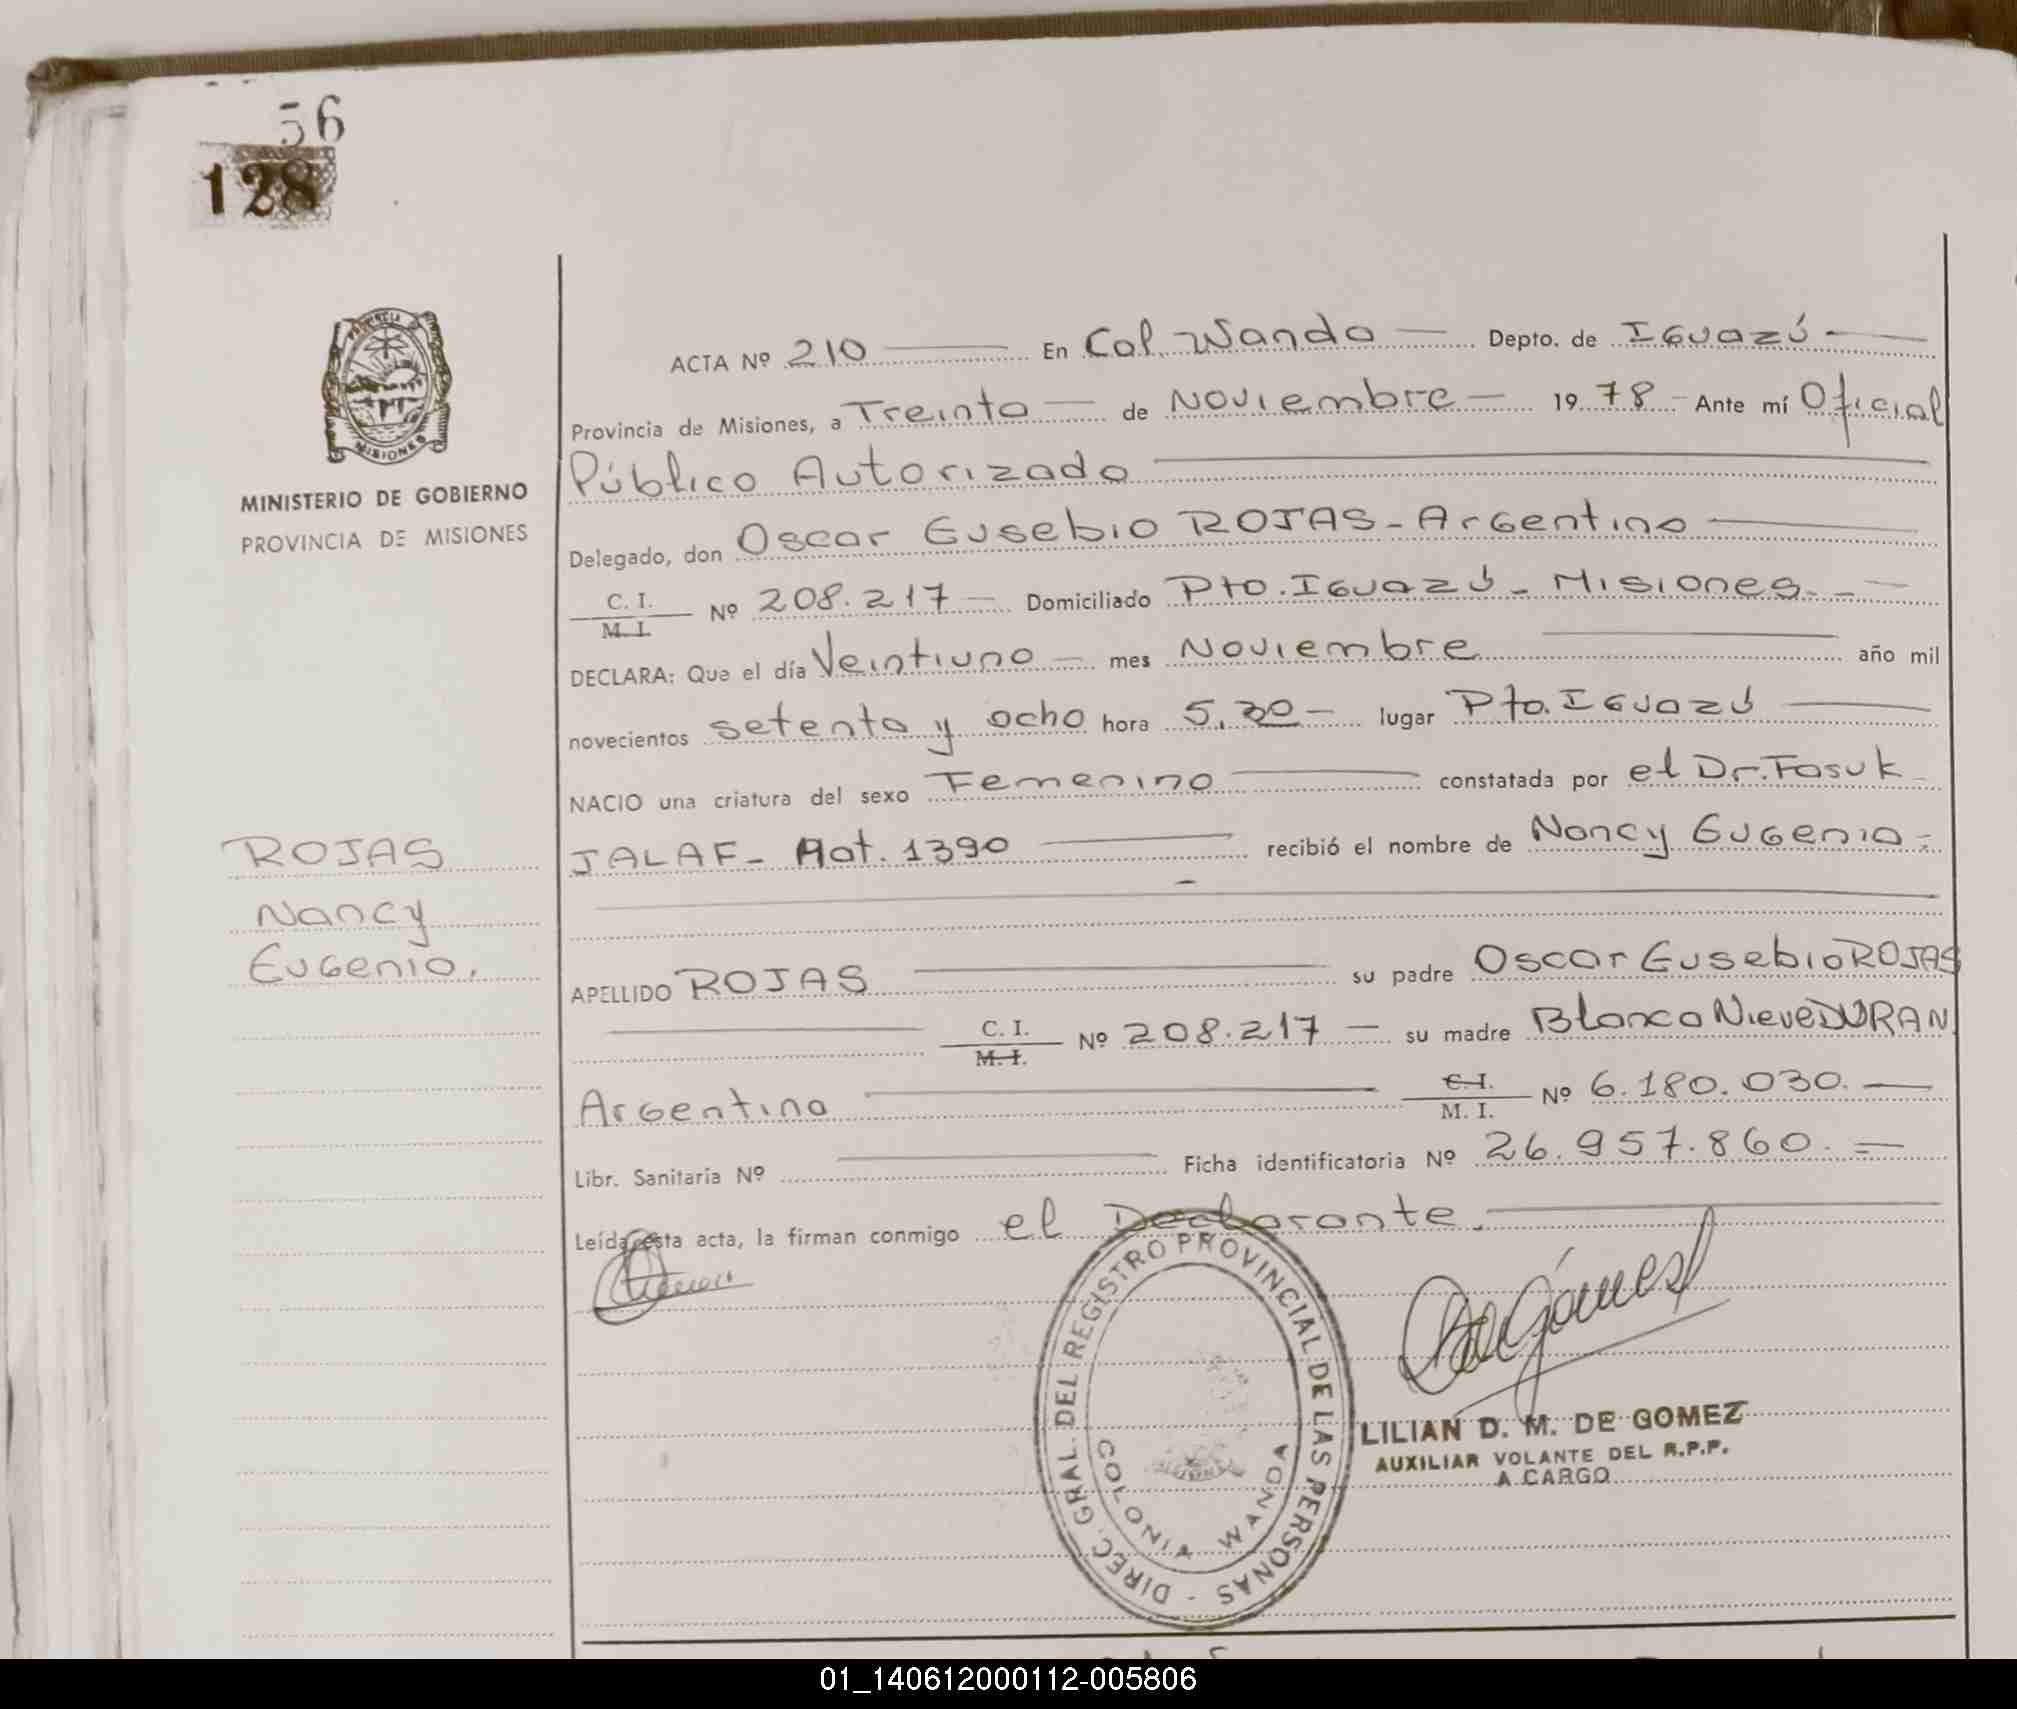 56
128
PROVINCIA DE
MISIONES
MINISTERIO DE GOBIERNO
PROVINCIA DE MISIONES
ACTA Nº 210 En Col. Wanda Depto. de Iguazú
Provincia de Misiones, a Treinta de Noviembre 1978 Ante mí Oficial
Público Autorizado
Delegado, don Oscar Eusebio ROJAS - Argentino
C. I. / M. I. Nº 208.217 Domiciliado Pto. Iguazú - Misiones
DECLARA: Que el día Veintiuno mes Noviembre año mil
novecientos setenta y ocho hora 5.30 lugar Pto. Iguazú
NACIO una criatura del sexo Femenino constatada por el Dr. Fasuk
JALAF - Mat. 1390 recibió el nombre de Nancy Eugenia
ROJAS
Nancy
Eugenia.
APELLIDO ROJAS su padre Oscar Eusebio ROJAS
C. I. / M. I. Nº 208.217 su madre Blanca Nieve DURAN
Argentina C. I. / M. I. Nº 6.180.030.
Libr. Sanitaria Nº Ficha identificatoria Nº 26.957.860.
Leída esta acta, la firman conmigo el Declarante.
DIREC. GRAL. DEL REGISTRO PROVINCIAL DE LAS PERSONAS -
COLONIA WANDA
LILIAN D. M. DE GOMEZ
AUXILIAR VOLANTE DEL R.P.P.
A CARGO
01_140612000112-005806